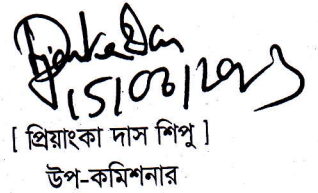 15/06/2023
[ প্রিয়াংকা দাস শিপু ]
উপ-কমিশনার